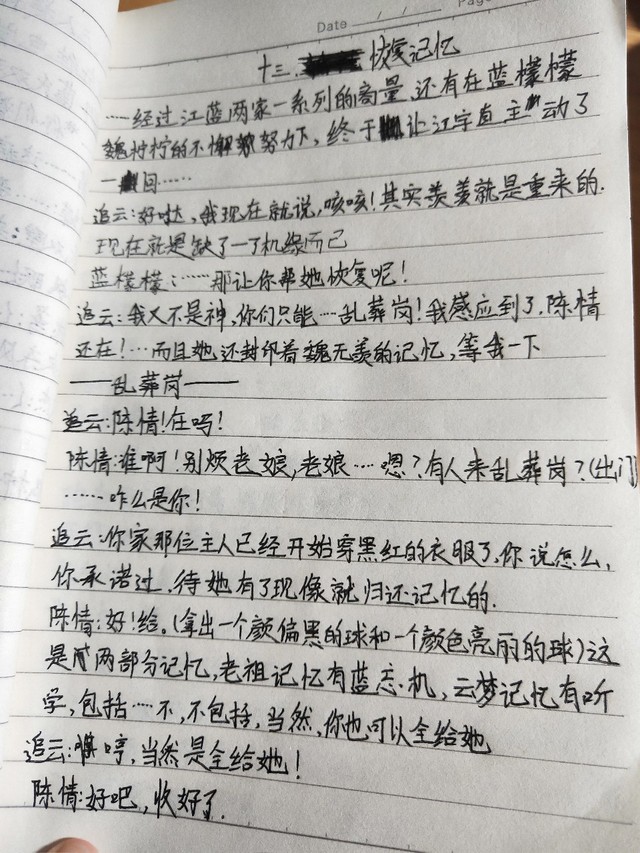 Date
Page
十三. 恢复记忆
……经过江蓝两家一系列的商量,还有在蓝檬檬
魏柠柠的不懈努力下,终于让江宇直主动了
一回……
追云:好哒,我现在就说,咳咳!其实羡羡就是重来的.
现在就是缺了一了机缘而已
蓝檬檬:……那让你帮她恢复呢!
追云:我又不是神,你们只能…乱葬岗!我感应到了.陈情
还在!…而且她还封印着魏无羡的记忆,等我一下
——乱葬岗——
追云:陈情!在吗!
陈情:谁啊!别烦老娘,老娘……嗯?有人来乱葬岗?(出门)
……咋么是你!
追云:你家那位主人已经开始穿黑红的衣服了,你说怎么,
你承诺过,待她有了现像就归还记忆的.
陈情:好!给.(拿出一个颜偏黑的球和一个颜色亮丽的球)这
是两部分记忆,老祖记忆有蓝忘机,云梦记忆有听
学,包括……不,不包括,当然,你也可以全给她
追云:哼,当然是全给她!
陈情:好吧,收好了.